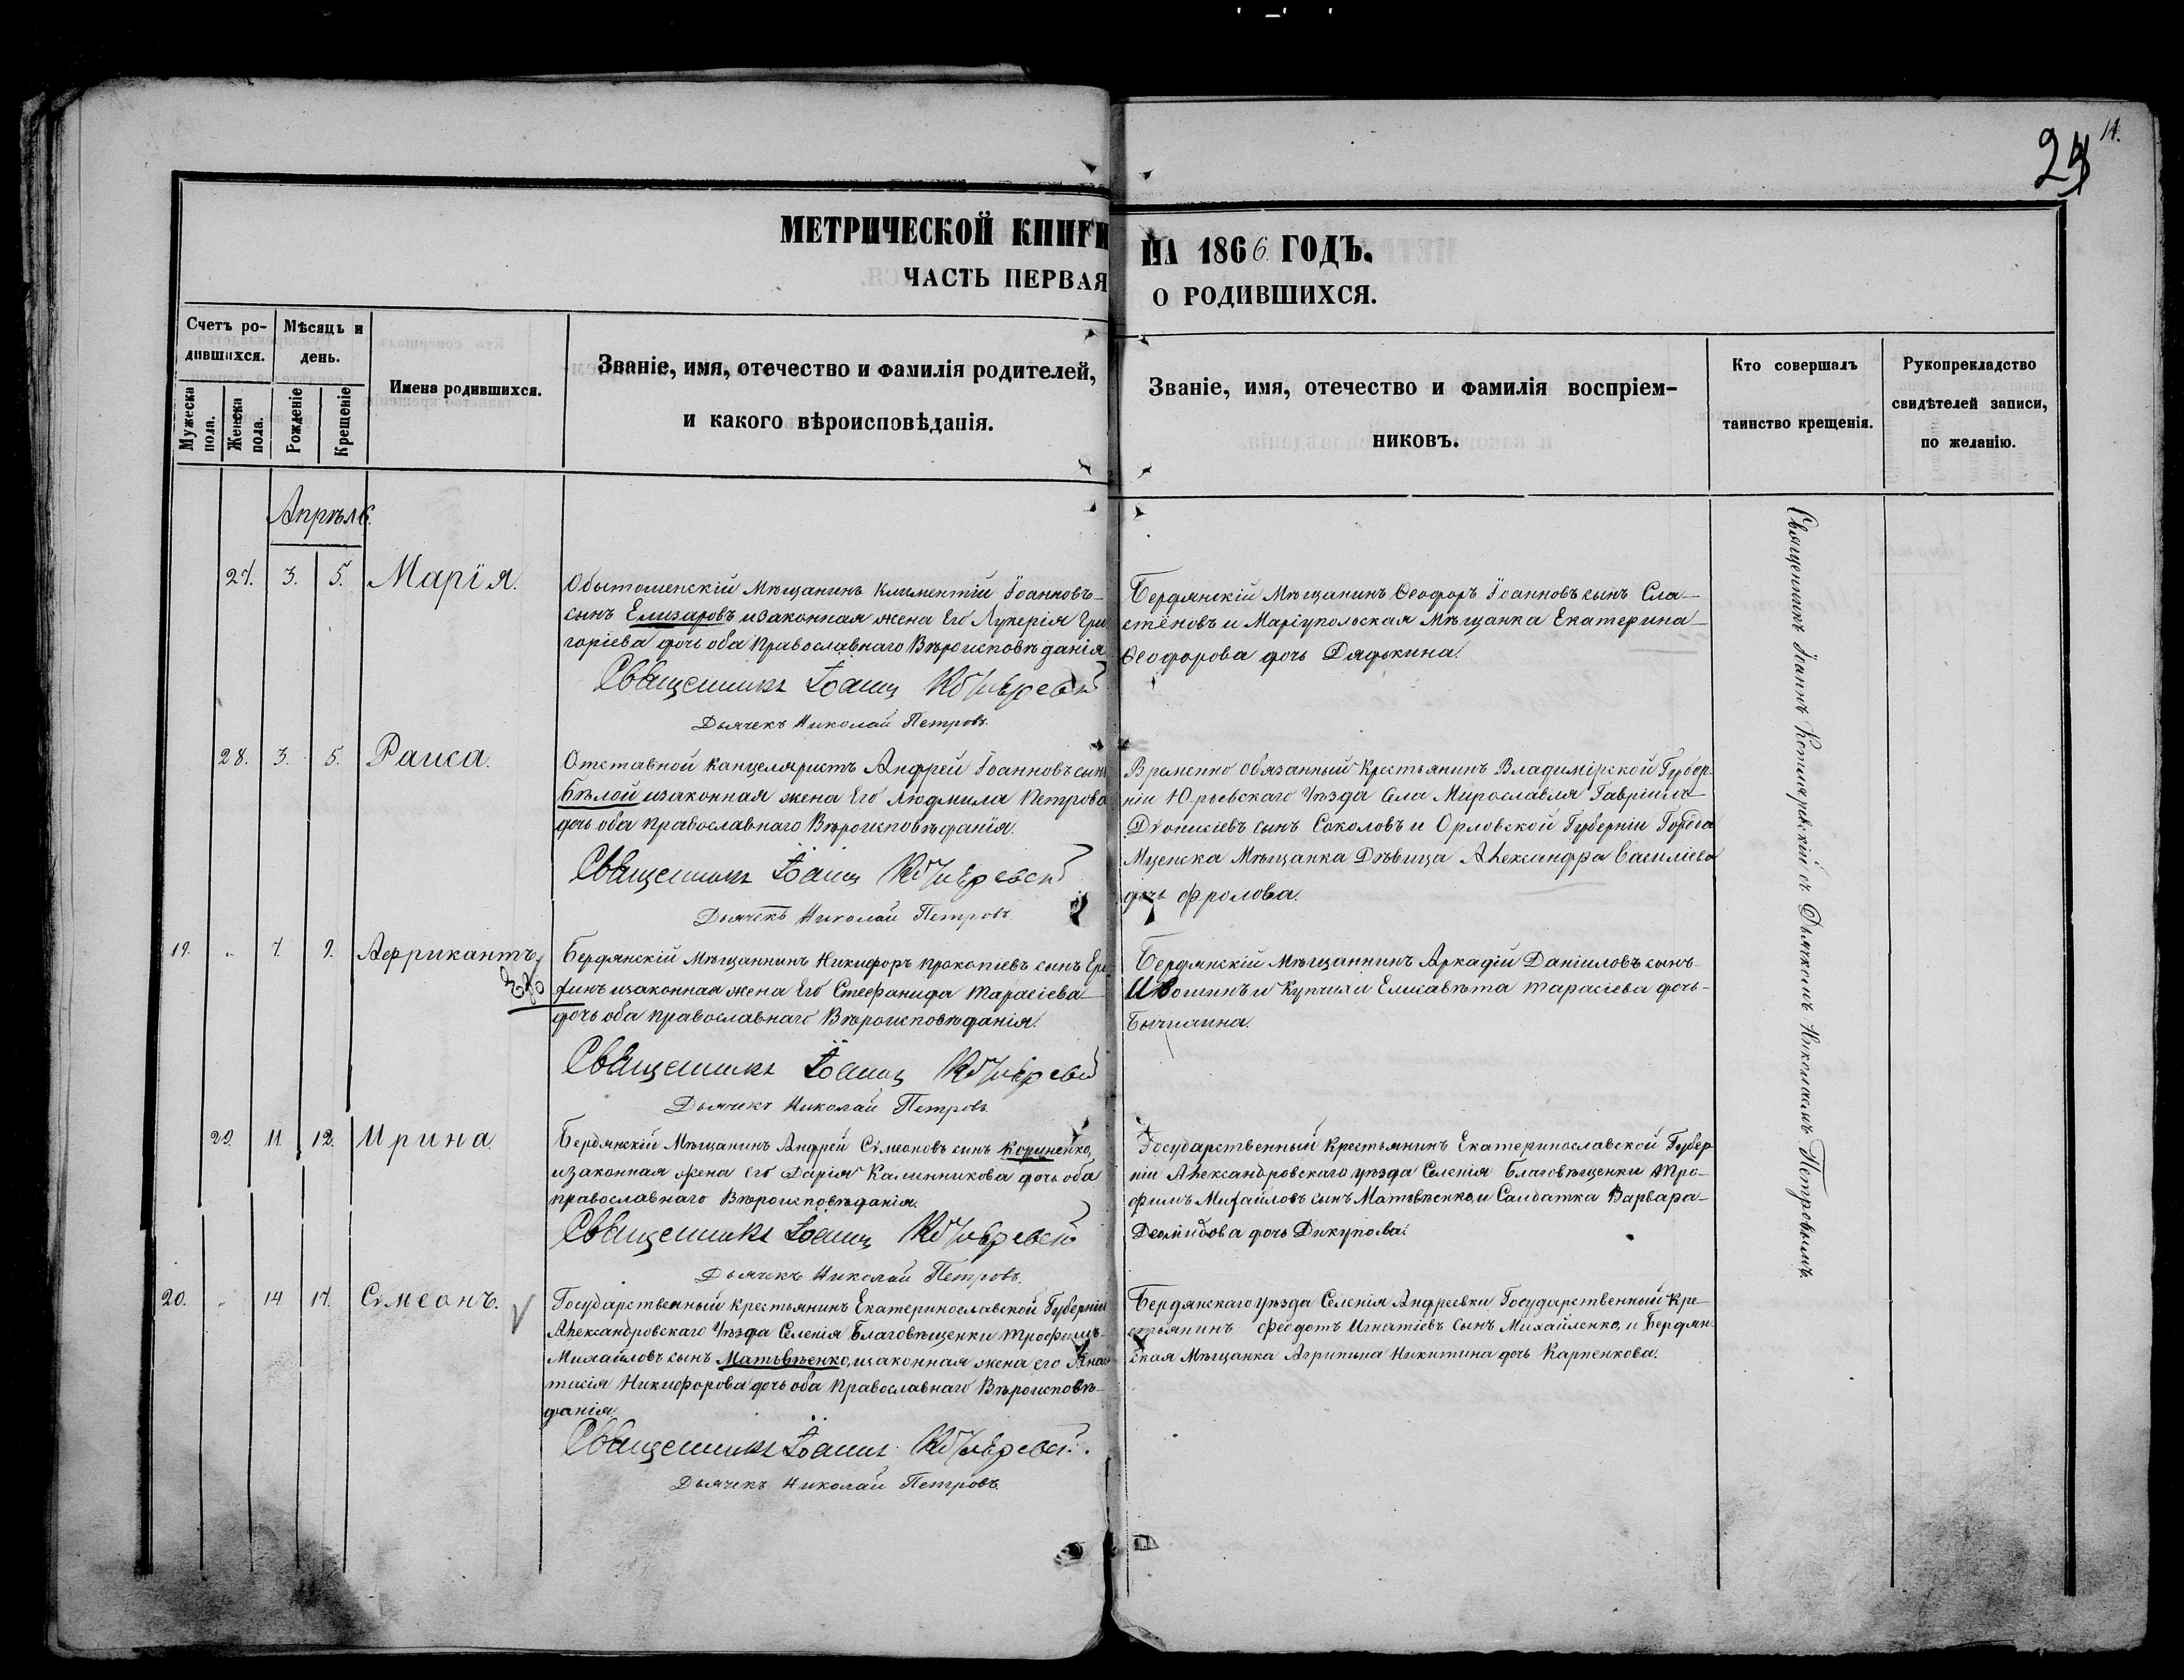 14.
МЕТРИЧЕСКОЙ КНИГИ НА 1866. ГОДЪ.
ЧАСТЬ ПЕРВАЯ О РОДИВШИХСЯ.
Счетъ родившихся.
Мужеска пола.
Женска пола.
Мѣсяцъ и день.
Рожденіе
Крещеніе
Имена родившихся.
Званіе, имя, отечество и фамилія родителей,
и какого вѣроисповѣданія.
Званіе, имя, отечество и фамилія воспріем-
никовъ.
Кто совершалъ
таинство крещенія.
Рукоприкладство
свидѣтелей записи,
по желанію.
Апрѣль.
27. 3. 5. Марія.
Мѣщанинъ Климентій Іоанновъ
сынъ Елизаровъ и законная жена Его Лукерія Гри
горіева дочь оба Православнаго Вѣроисповѣданія
Священникъ Іоаннъ
Дьячекъ Николай Петровъ.
Бердянскій Мѣщанинъ Ѳеодоръ Іоанновъ сынъ Сла-
стёновъ и Маріупольская Мѣщанка Екатерина
Ѳеодорова дочь Дядькина.
28. 3. 5. Раиса.
Отставной Канцеляристъ Андрей Іоанновъ сынъ
Бѣлой и законная жена Его Людмила Петрова
дочь оба православнаго Вѣроисповѣданія.
Священникъ Іоаннъ
Дьячекъ Николай Петровъ.
Временно обязанный Крестьянинъ Владимірской Губер-
ніи Юрьевскаго Уѣзда Села Мирославля Гавріилъ
Діонисіевъ сынъ Соколовъ и Орловской Губерніи Города
Мценска Мѣщанка Дѣвица Александра Василіева
дочь Фролова.
19. „ 7. 9. Африкантъ.
Бердянскій Мѣщаннинъ Никифоръ Прокопіевъ сынъ Ере
финъ и законная жена Его Стефанида Тарасіева
дочь оба православнаго Вѣроисповѣданія.
Священникъ Іоаннъ
Дьячекъ Николай Петровъ.
Бердянскій Мѣщаннинъ Аркадій Даніиловъ сынъ
и Купчиха Елисавѣта Тарасіева дочь
29. 11. 12. Ирина.
Бердянскій Мѣщанинъ Андрей Сѵмеоновъ сынъ Кориненко,
и законная жена Его Дарія Калинникова дочь оба
православнаго Вѣроисповѣданія.
Священникъ Іоаннъ
Дьячекъ Николай Петровъ.
Государственный Крестьянинъ Екатеринославской Губер
ніи Александровскаго уѣзда Селенія Благовѣщенки Тро-
фимъ Михайловъ сынъ Матвѣенко, и Салдатка Варвара
Демидова дочь Дикунова.
20. „ 14. 17. Сѵмеонъ.
Государственный Крестьянинъ Екатеринославской Губерніи
Александровскаго Уѣзда Селенія Благовѣщенки Трофимъ
Михайловъ сынъ Матвѣенко, и законная жена его Анас
тасія Никифорова дочь оба Православнаго Вѣроисповѣ-
данія.
Священникъ Іоаннъ
Дьячекъ Николай Петровъ.
Бердянскаго уѣзда Селенія Андреевки Государственный Кре-
стьянинъ Феодотъ Игнатіевъ сынъ Михайленко, и Бердян
ская Мѣщанка Агрипина Никитина дочь Карпенкова.
Священникъ Іоаннъ Котляревскій съ Дьячкомъ Николаемъ Петровымъ